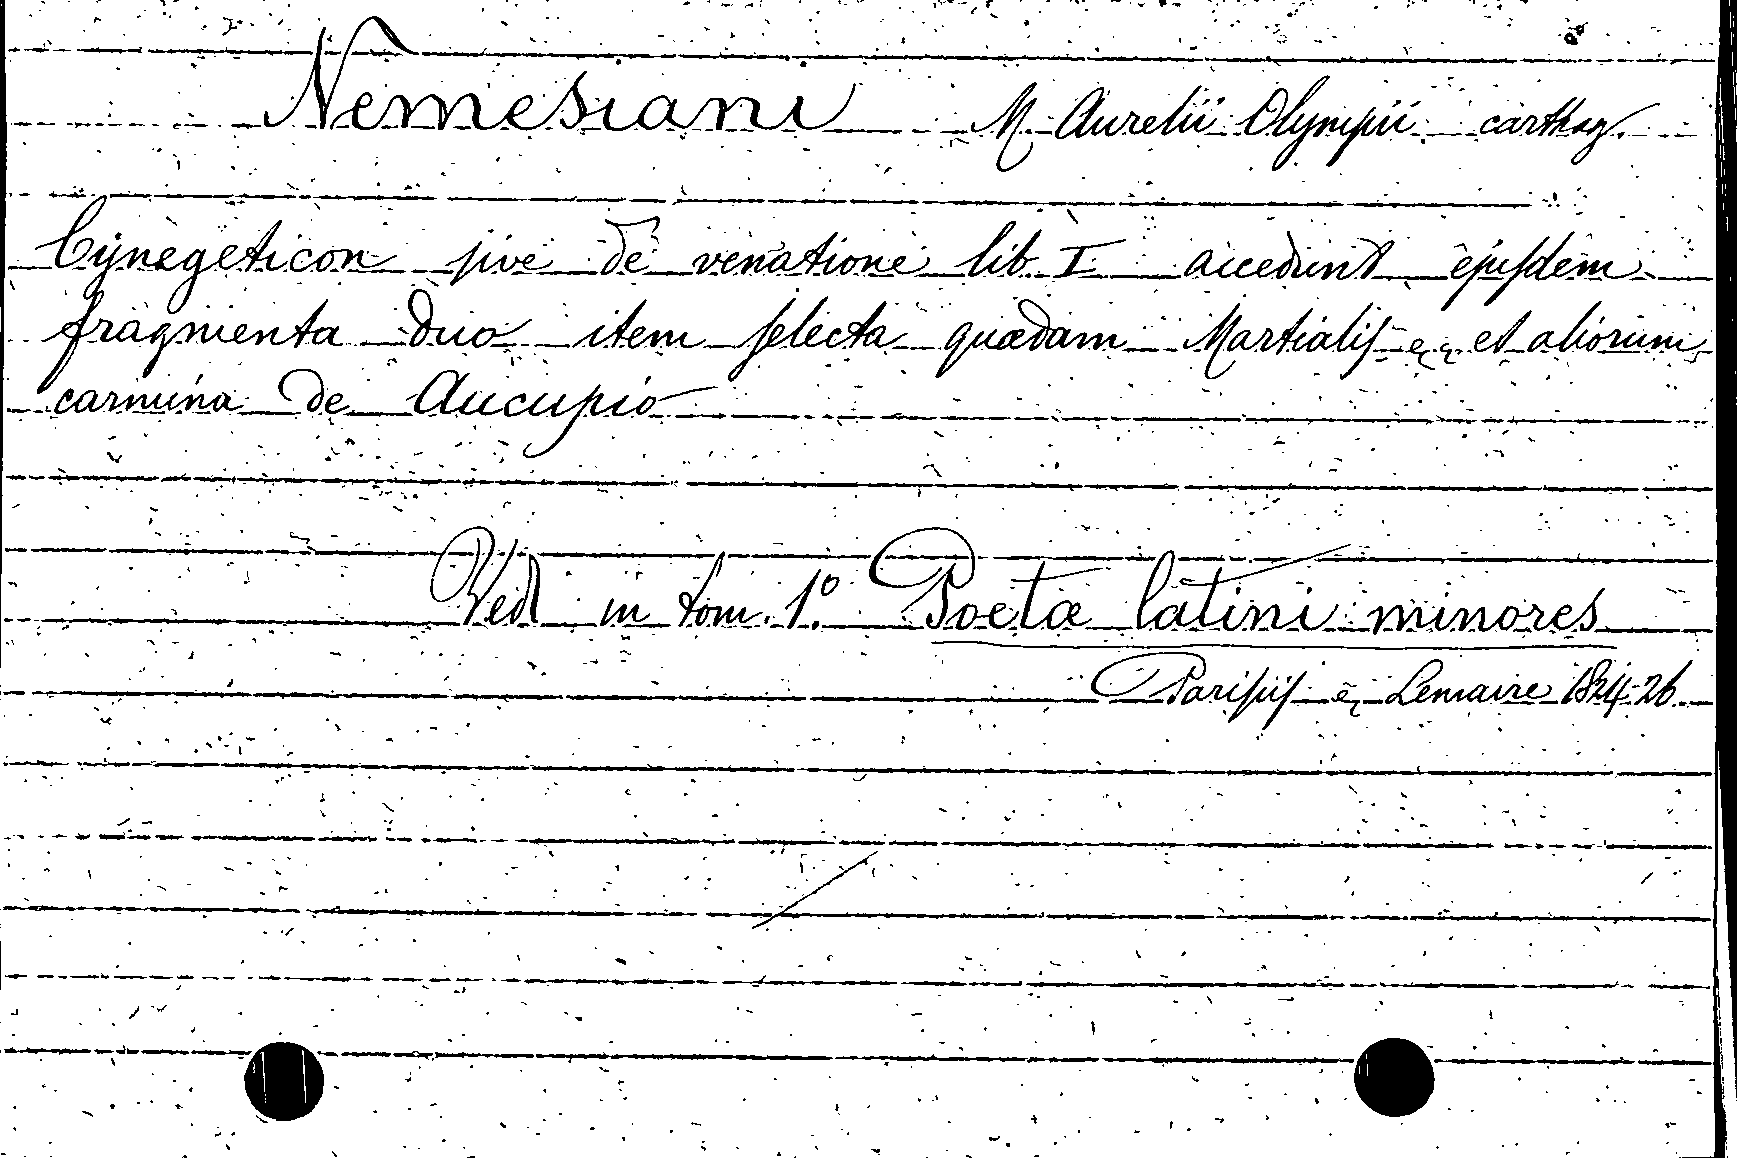 Nemesiani M. Aurelii Olympii carthag.
Cynegeticon sive de venatione lib. I accedunt ejusdem
fragmenta duo item selecta quædam Martialis et aliorum
carmina de Aucupio
Ved in tom. 1.º Poetæ latini minores
Parisiis Lemaire 1824-26